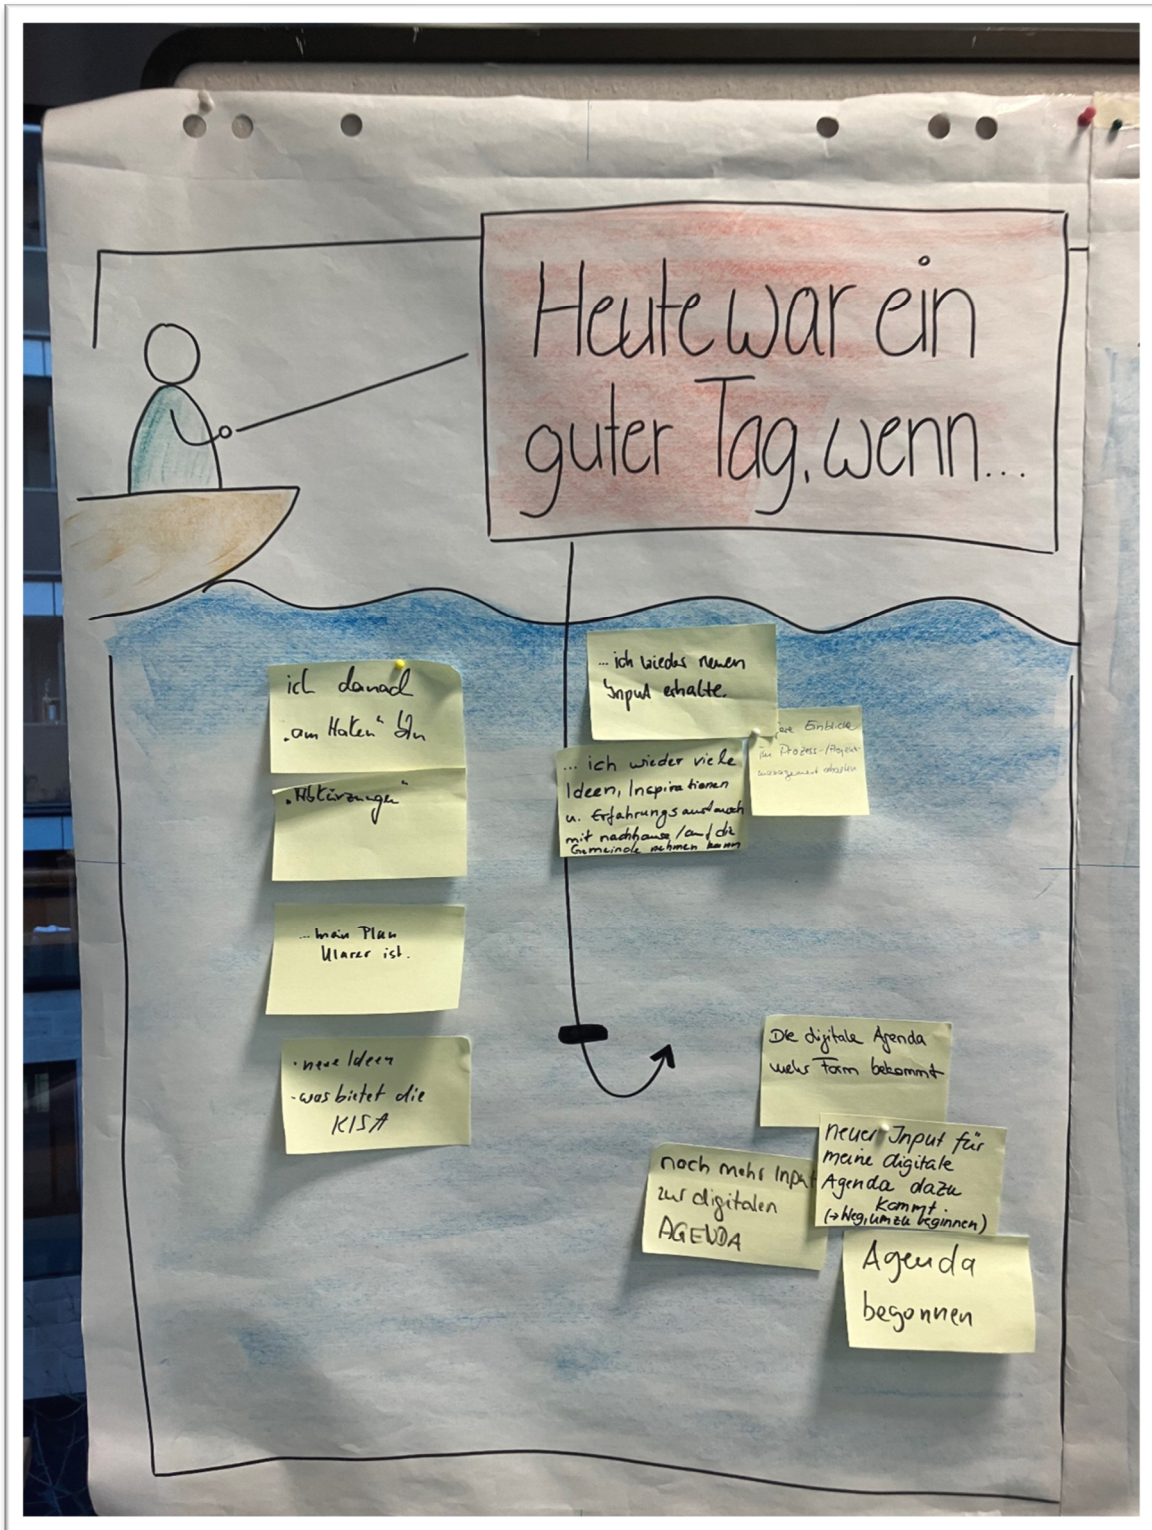 Heute war ein
guter Tag, wenn...
ich danach
„am Haken" bin
„Abkürzungen"
...mein Plan
klarer ist.
· neue Ideen
- was bietet die
KISA
... ich wieder neuen
Input erhalte.
... ich wieder viele
Ideen, Inspirationen
u. Erfahrungsaustausch
mit nachhause/auf die
Gemeinde nehmen kann
Einblicke
im Prozess-/Projekt-
management erhalten
Die digitale Agenda
mehr Form bekommt
neuer Input für
meine digitale
Agenda dazu
kommt.
(→ Weg, um zu beginnen)
noch mehr Input
zur digitalen
AGENDA
Agenda
begonnen